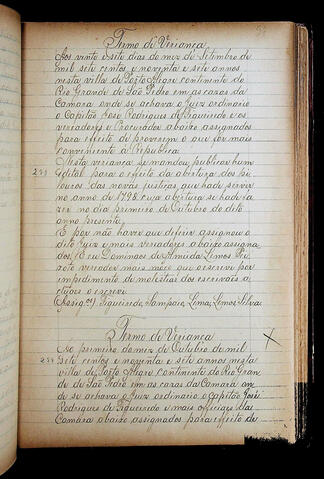 Termo de Veriança
Aos vinte e sete dias do mez de Setembro de
mil sete centos e noventa e sete annos
nesta villa de Porto Alegre continente do
Rio Grande de São Pedro em as casas da
Camara onde se achava o Juiz ordinario
o Capitão José Rodrigues de Figueiredo e os
vereadores e Procurador abaixo assignados
para effeito de proverem o que fôr mais
conveniente á Republica.
Nesta veriança se mandou publicar hum
Edital para o effeito da abertura dos pe-
louros das novas justiças, que hade servir
no anno de 1798 cuja abertura se hade fa-
zer no dia primeiro de Outubro do dito
anno presente.
E por não haver que deferir assignou o
dito Juiz e mais vereadores abaixo assigna-
dos. E eu Domingos de Almeida Lemos Pei-
xoto vereador mais moço que o escrevo por
impedimento de molestia do escrivão
o escrevi
(Assig.os) Figueiredo, Sampaio, Lima, Lemos, Silva.
Termo de Veriança
Ao primeiro do mez de Outubro de mil
sete centos e noventa e sete annos nesta
villa de Porto Alegre continente do Rio Gran-
de de São Pedro em as cazas da Camara on-
de se achava o Juiz ordinario o Capitão José
Rodrigues de Figueiredo e mais officiaes da
Camara abaixo assignados para effeito de